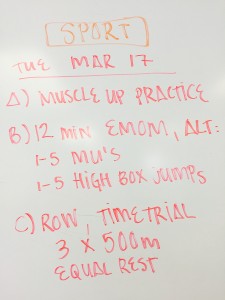 SPORT
TUE MAR 17
A) MUSCLE UP PRACTICE
B) 12 MIN EMOM, ALT:
1-5 MU'S
1-5 HIGH BOX JUMPS
C) ROW, TIMETRIAL
3 X 500m
EQUAL REST